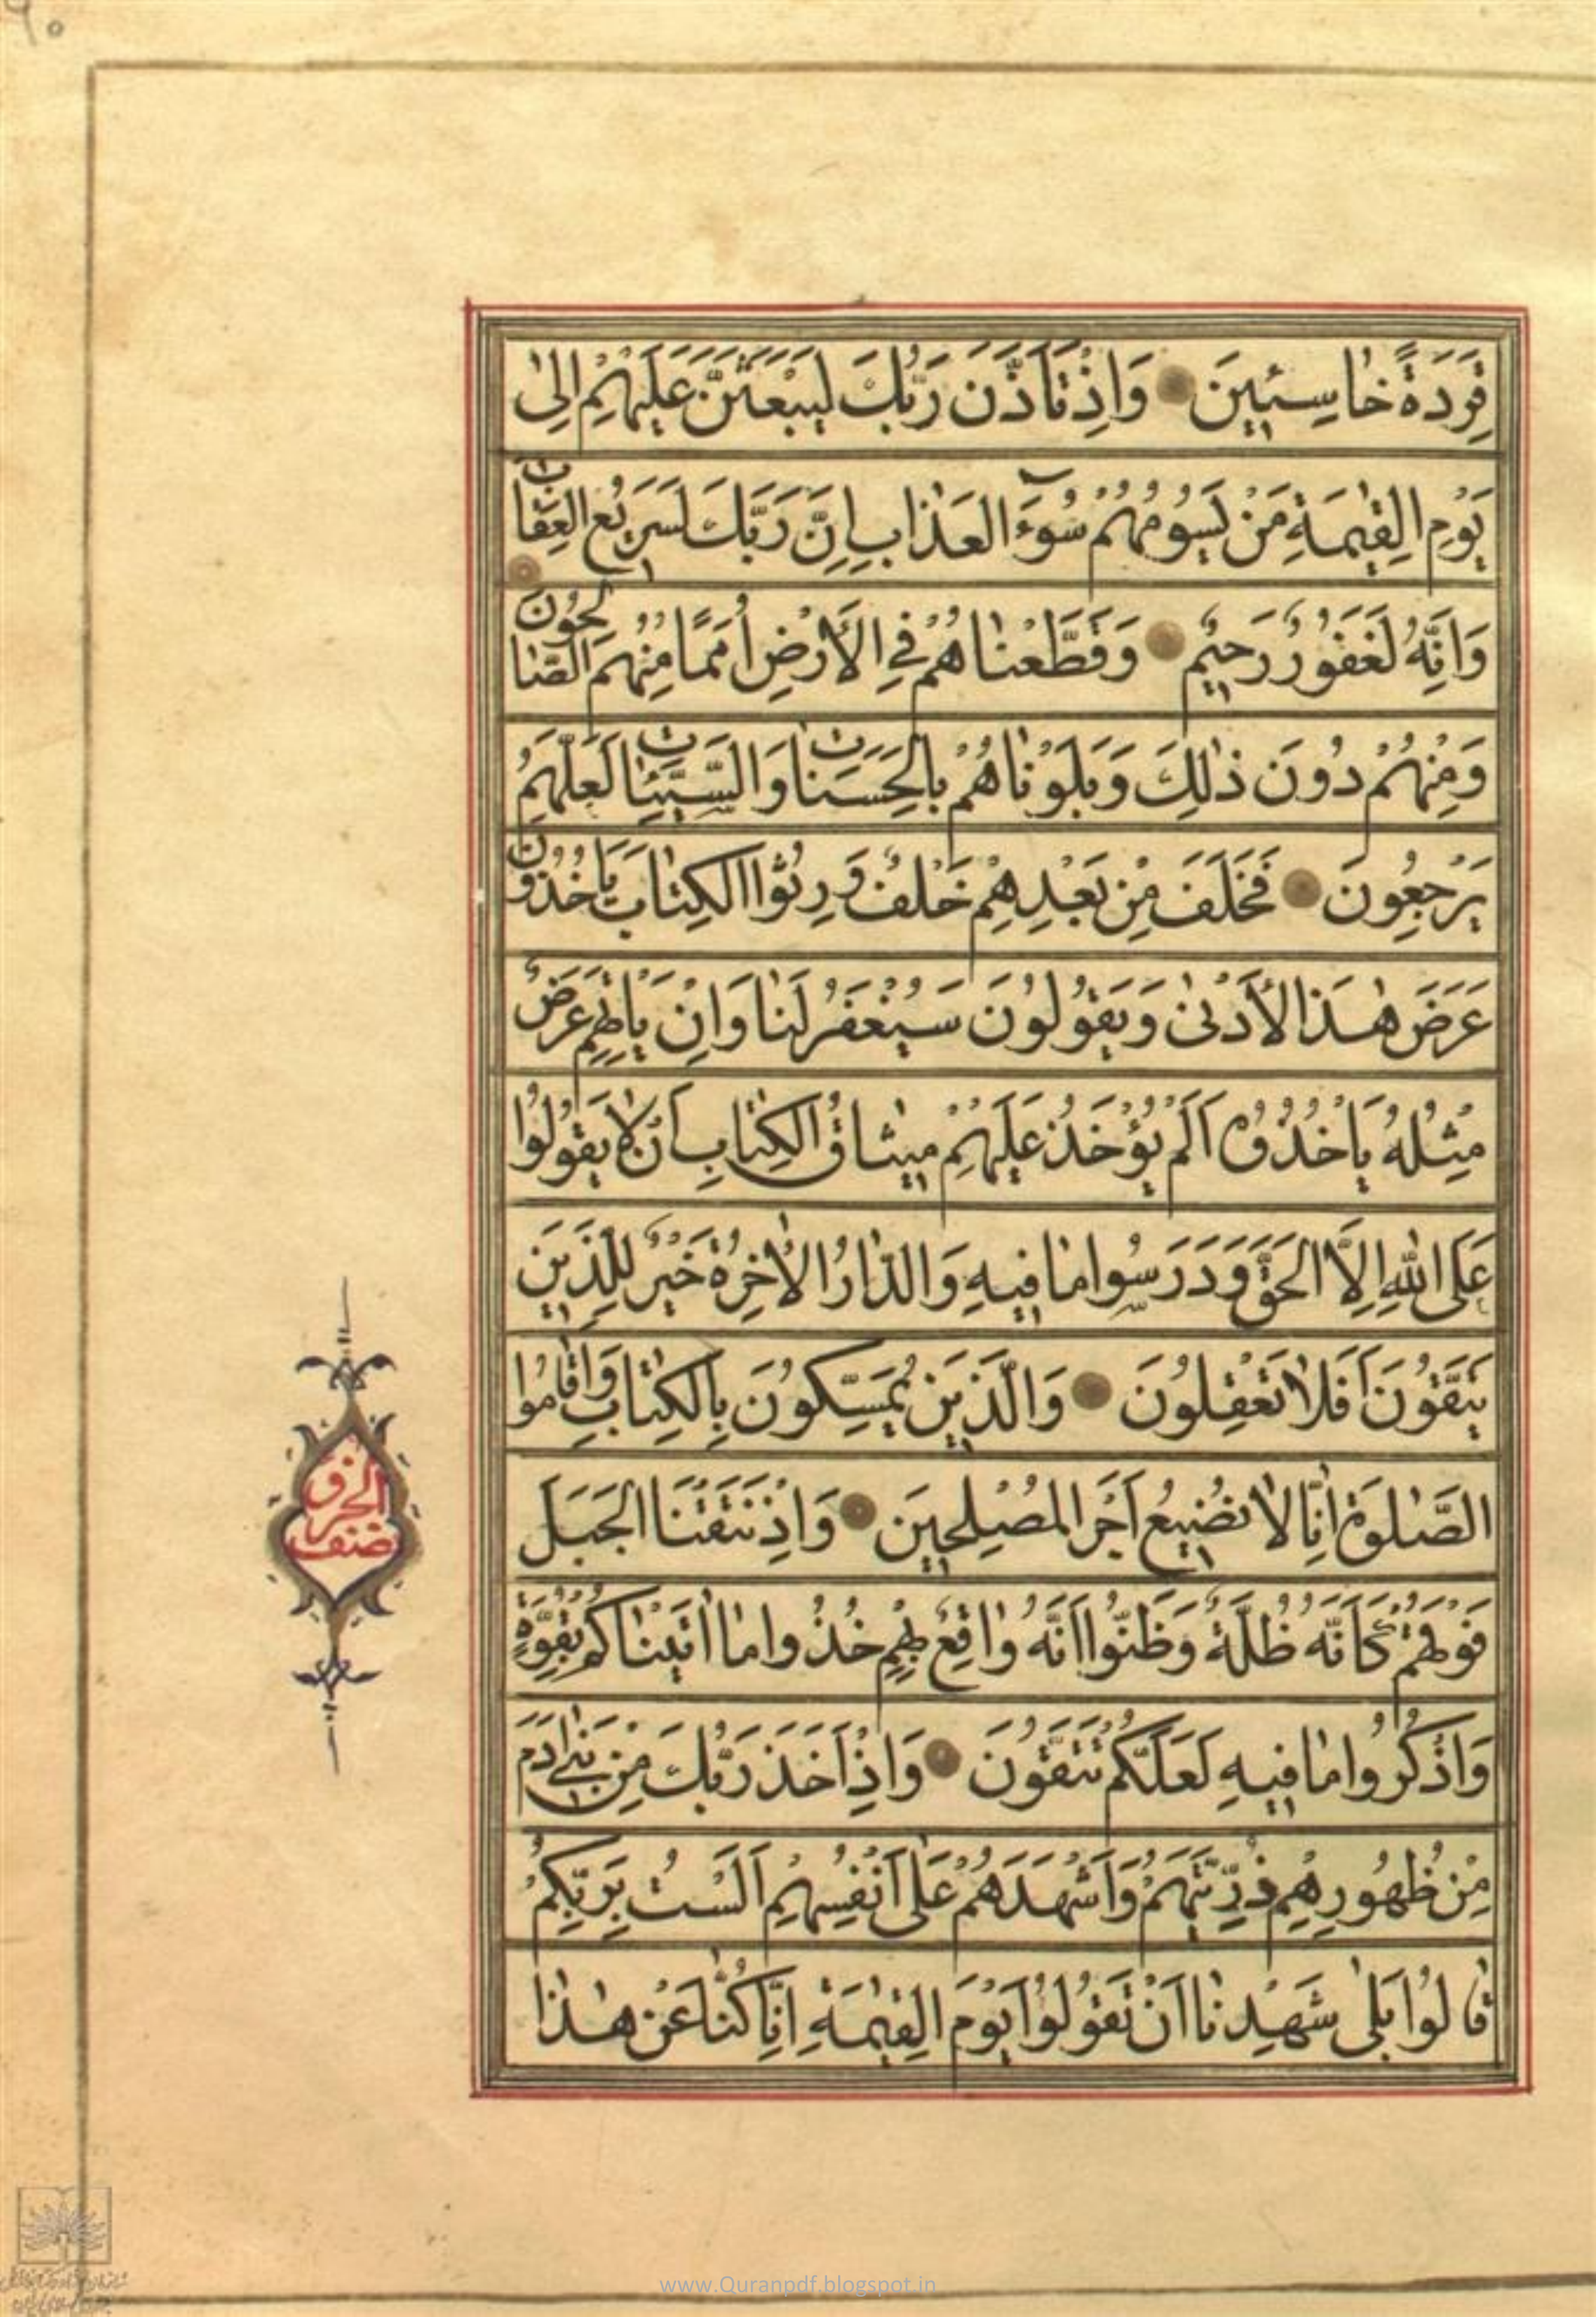 قِرَدَةً خاسِئينَ وَاِذْ تَاَذَّنَ رَبُّكَ لَيَبْعَثَنَّ عَلَيْهِمْ اِلىٰ
يَوْمِ الْقِيٰمَةِ مَنْ يَسُومُهُمْ سُوءَ الْعَذابِ اِنَّ رَبَّكَ لَسَريعُ الْعِقابِ
وَاِنَّهُ لَغَفُورٌ رَحيمٌ وَقَطَّعْناهُمْ فِي الْاَرْضِ اُمَمًا مِنْهُمُ الصّالِحُونَ
وَمِنْهُمْ دُونَ ذٰلِكَ وَبَلَوْناهُمْ بِالْحَسَناتِ وَالسَّيِّئاتِ لَعَلَّهُمْ
يَرْجِعُونَ فَخَلَفَ مِنْ بَعْدِهِمْ خَلْفٌ وَرِثُوا الْكِتابَ يَاْخُذُونَ
عَرَضَ هٰذَا الْاَدْنىٰ وَيَقُولُونَ سَيُغْفَرُ لَنا وَاِنْ يَاْتِهِمْ عَرَضٌ
مِثْلُهُ يَاْخُذُوهُ اَلَمْ يُؤْخَذْ عَلَيْهِمْ ميثاقُ الْكِتابِ اَنْ لا يَقُولُوا
عَلَى اللّٰهِ اِلَّا الْحَقَّ وَدَرَسُوا ما فيهِ وَالدّارُ الْاٰخِرَةُ خَيْرٌ لِلَّذينَ
يَتَّقُونَ اَفَلا تَعْقِلُونَ وَالَّذينَ يُمَسِّكُونَ بِالْكِتابِ وَاَقامُوا
الصَّلٰوةَ اِنّا لا نُضيعُ اَجْرَ الْمُصْلِحينَ وَاِذْ نَتَقْنَا الْجَبَلَ
فَوْقَهُمْ كَاَنَّهُ ظُلَّةٌ وَظَنُّوا اَنَّهُ واقِعٌ بِهِمْ خُذُوا ما اٰتَيْناكُمْ بِقُوَّةٍ
وَاذْكُرُوا ما فيهِ لَعَلَّكُمْ تَتَّقُونَ وَاِذْ اَخَذَ رَبُّكَ مِنْ بَني اٰدَمَ
مِنْ ظُهُورِهِمْ ذُرِّيَّتَهُمْ وَاَشْهَدَهُمْ عَلىٰ اَنْفُسِهِمْ اَلَسْتُ بِرَبِّكُمْ
قالُوا بَلىٰ شَهِدْنا اَنْ تَقُولُوا يَوْمَ الْقِيٰمَةِ اِنّا كُنّا عَنْ هٰذا
نصف
الحزب
www.Quranpdf.blogspot.in